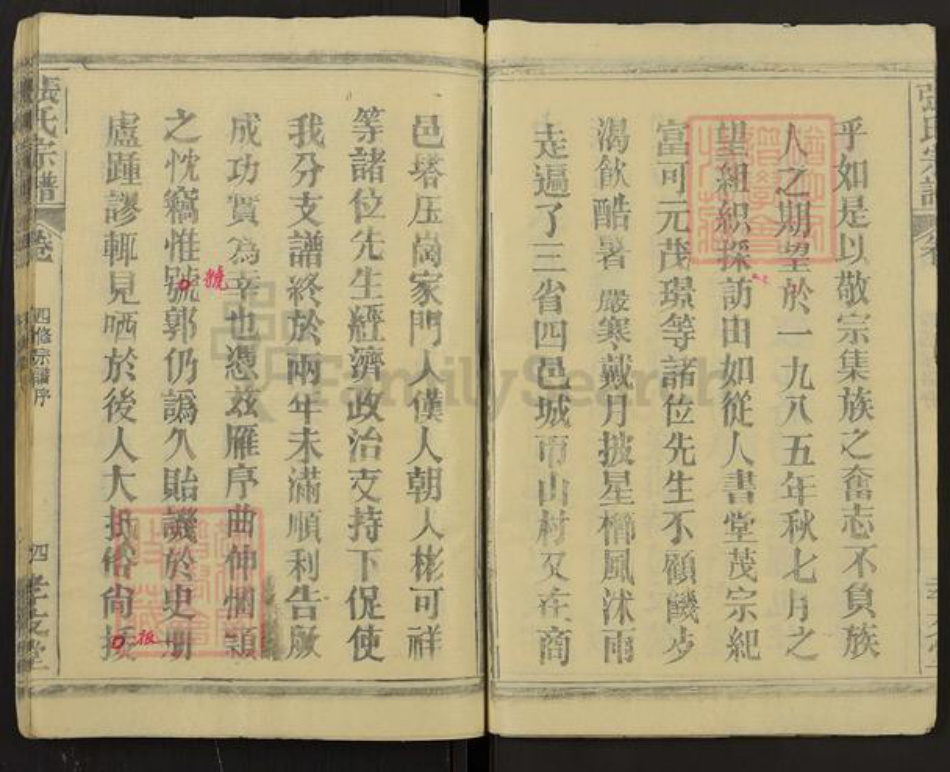 乎如是以敬宗集族之奮志不負族
人之期望於一九八五年秋七月之
望組織探訪田如從人書堂茂宗紀
富可元茂璟等諸位先生不顧饑步
渴飲酷暑嚴寒戴月披星櫛風沐雨
走遍了三省四邑城市山村又在商
張氏宗譜
卷
四修宗譜序
四
孝友堂
邑塔压崗家門人僕人朝人彬可祥
等諸位先生經濟政治支持下促使
我分支譜終於兩年未滿順利告厥
成功實為幸也憑玆雁序曲伸悃穎
之忱竊惟號郭仍譌久貽譏於史冊
號
盧踵謬輒見哂於後人大抵俗尚扳
扳
張氏宗譜
卷
FamilySearch